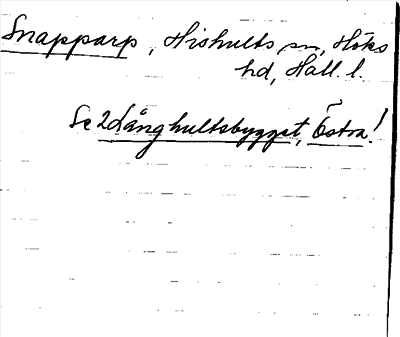 Snapparp, Hishults sn, Höks
hd, Hall. l.
Se Långhultsbygget, Östra!